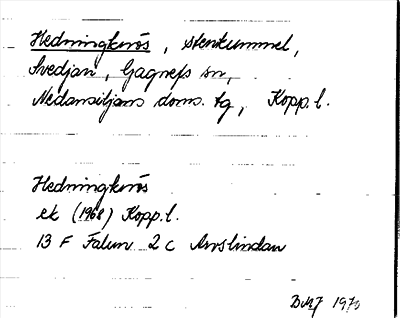 Hedningkrös, stenkummel,
Svedjan, Gagnefs sn,
Nedansiljans doms. tg, Kopp. l.
Hedningkrös
ek (1968) Kopp. l.
13 F Falun 2 c Arvslindan
1970